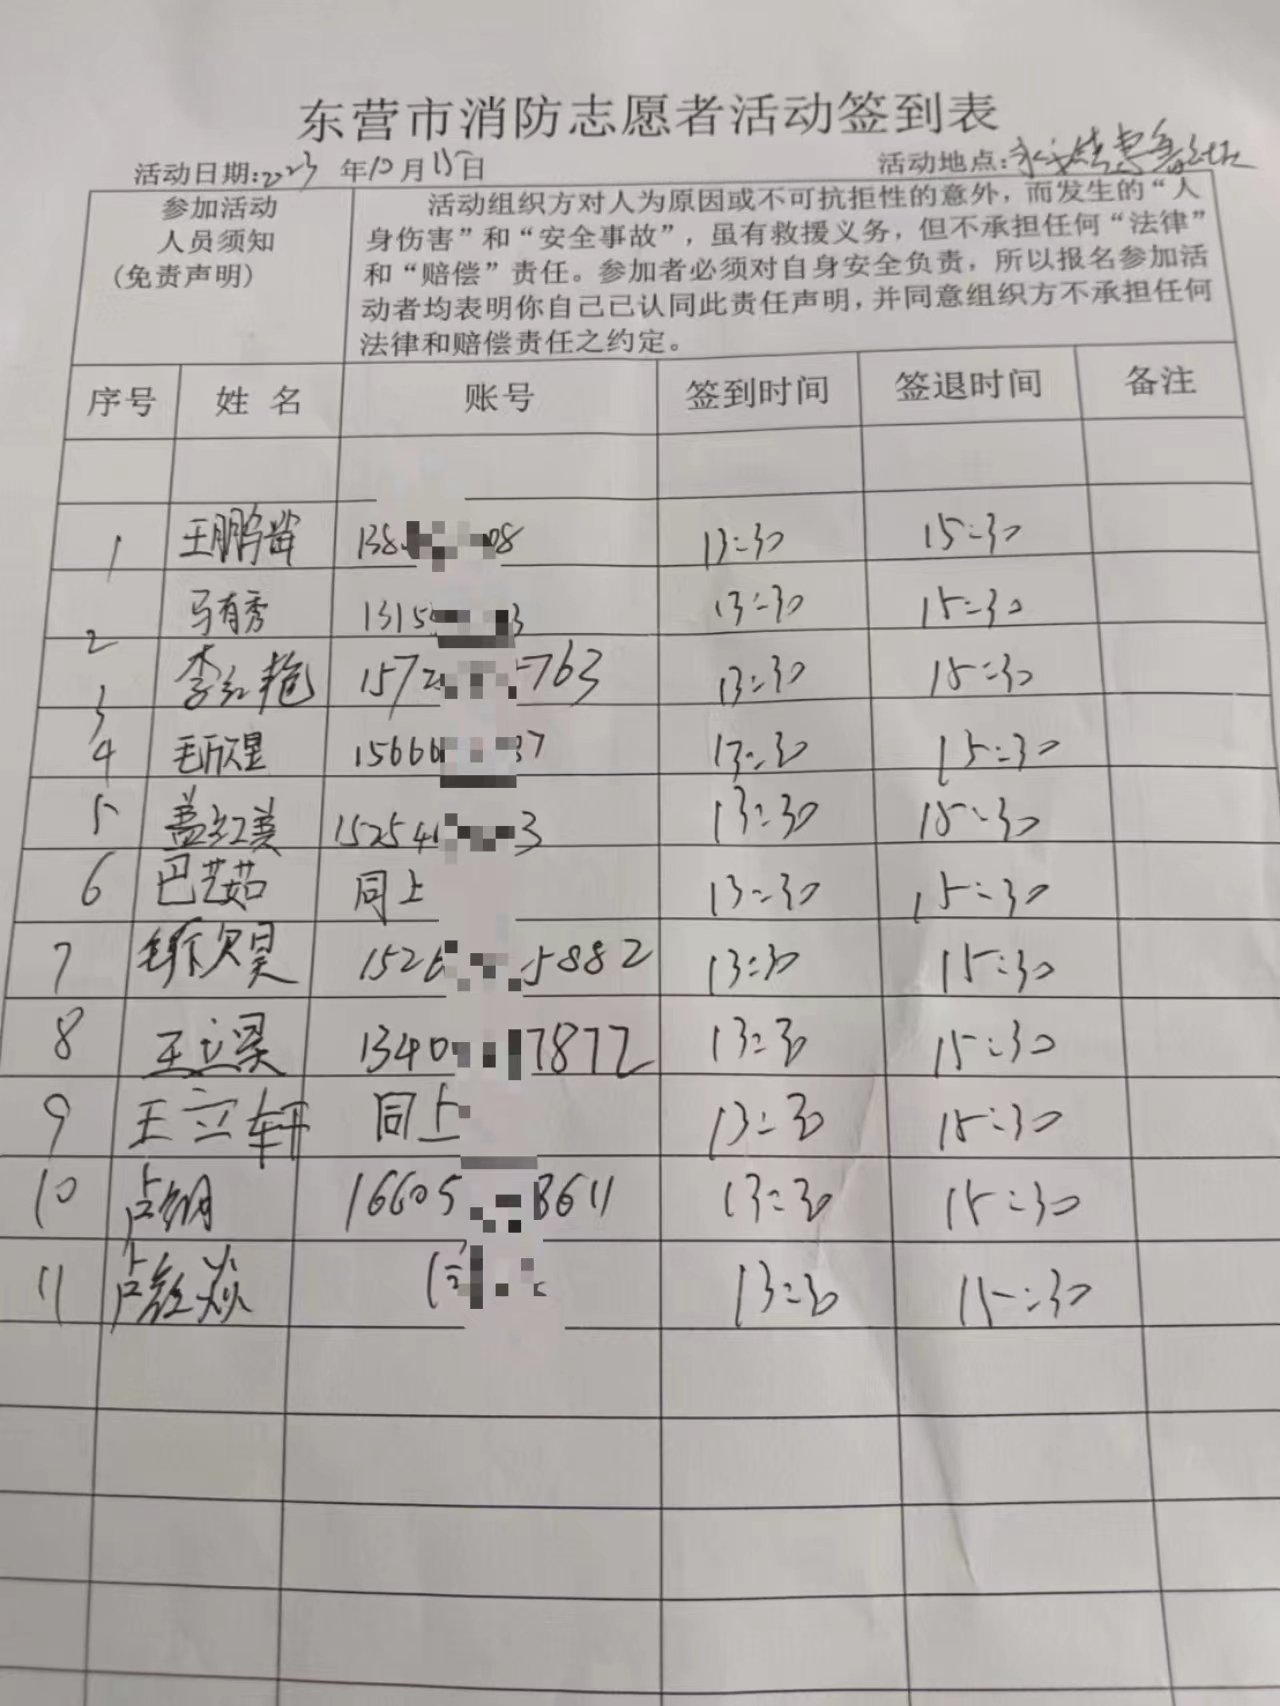 东营市消防志愿者活动签到表
活动日期:2023年10月15日 活动地点:
参加活动
人员须知
(免责声明)
活动组织方对人为原因或不可抗拒性的意外，而发生的“人
身伤害”和“安全事故”，虽有救援义务，但不承担任何“法律”
和“赔偿”责任。参加者必须对自身安全负责，所以报名参加活
动者均表明你自己已认同此责任声明，并同意组织方不承担任何
法律和赔偿责任之约定。
序号 姓名 账号 签到时间 签退时间 备注
1 王鹏 138 08 13:30 15:30
2 马有秀 1315 3 13:30 15:30
3 李红艳 1572 5763 13:30 15:30
4 毛欣星 15666 37 13:30 15:30
5 盖红美 15254 3 13:30 15:30
6 巴艺茹 同上 13:30 15:30
7 毛欣昊 1526 5882 13:30 15:30
8 王立昊 1340 7872 13:30 15:30
9 王立轩 同上 13:30 15:30
10 16605 3611 13:30 15:30
11 13:30 15:30